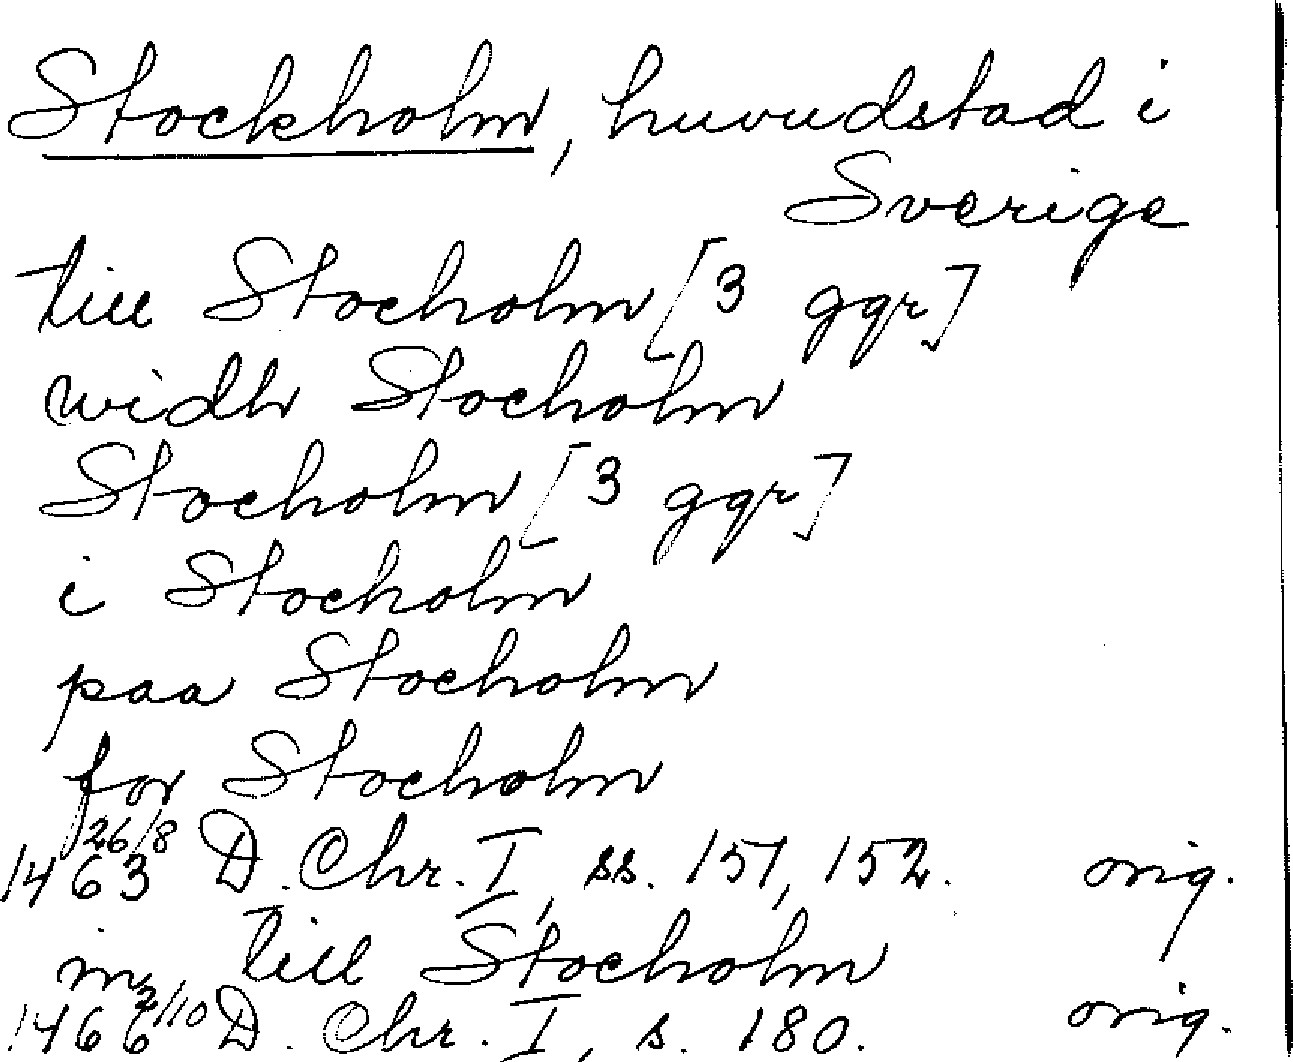 Stockholm, huvudstad i
Sverige
till Stocholm [3 ggr]
widh Stocholm
Stocholm [3 ggr]
i Stocholm
paa Stocholm
for Stocholm
1463 26/8 D. Chr. I, ss. 151, 152. orig.
in till Stocholm
1466 2/10 D. Chr. I, s. 180. orig.